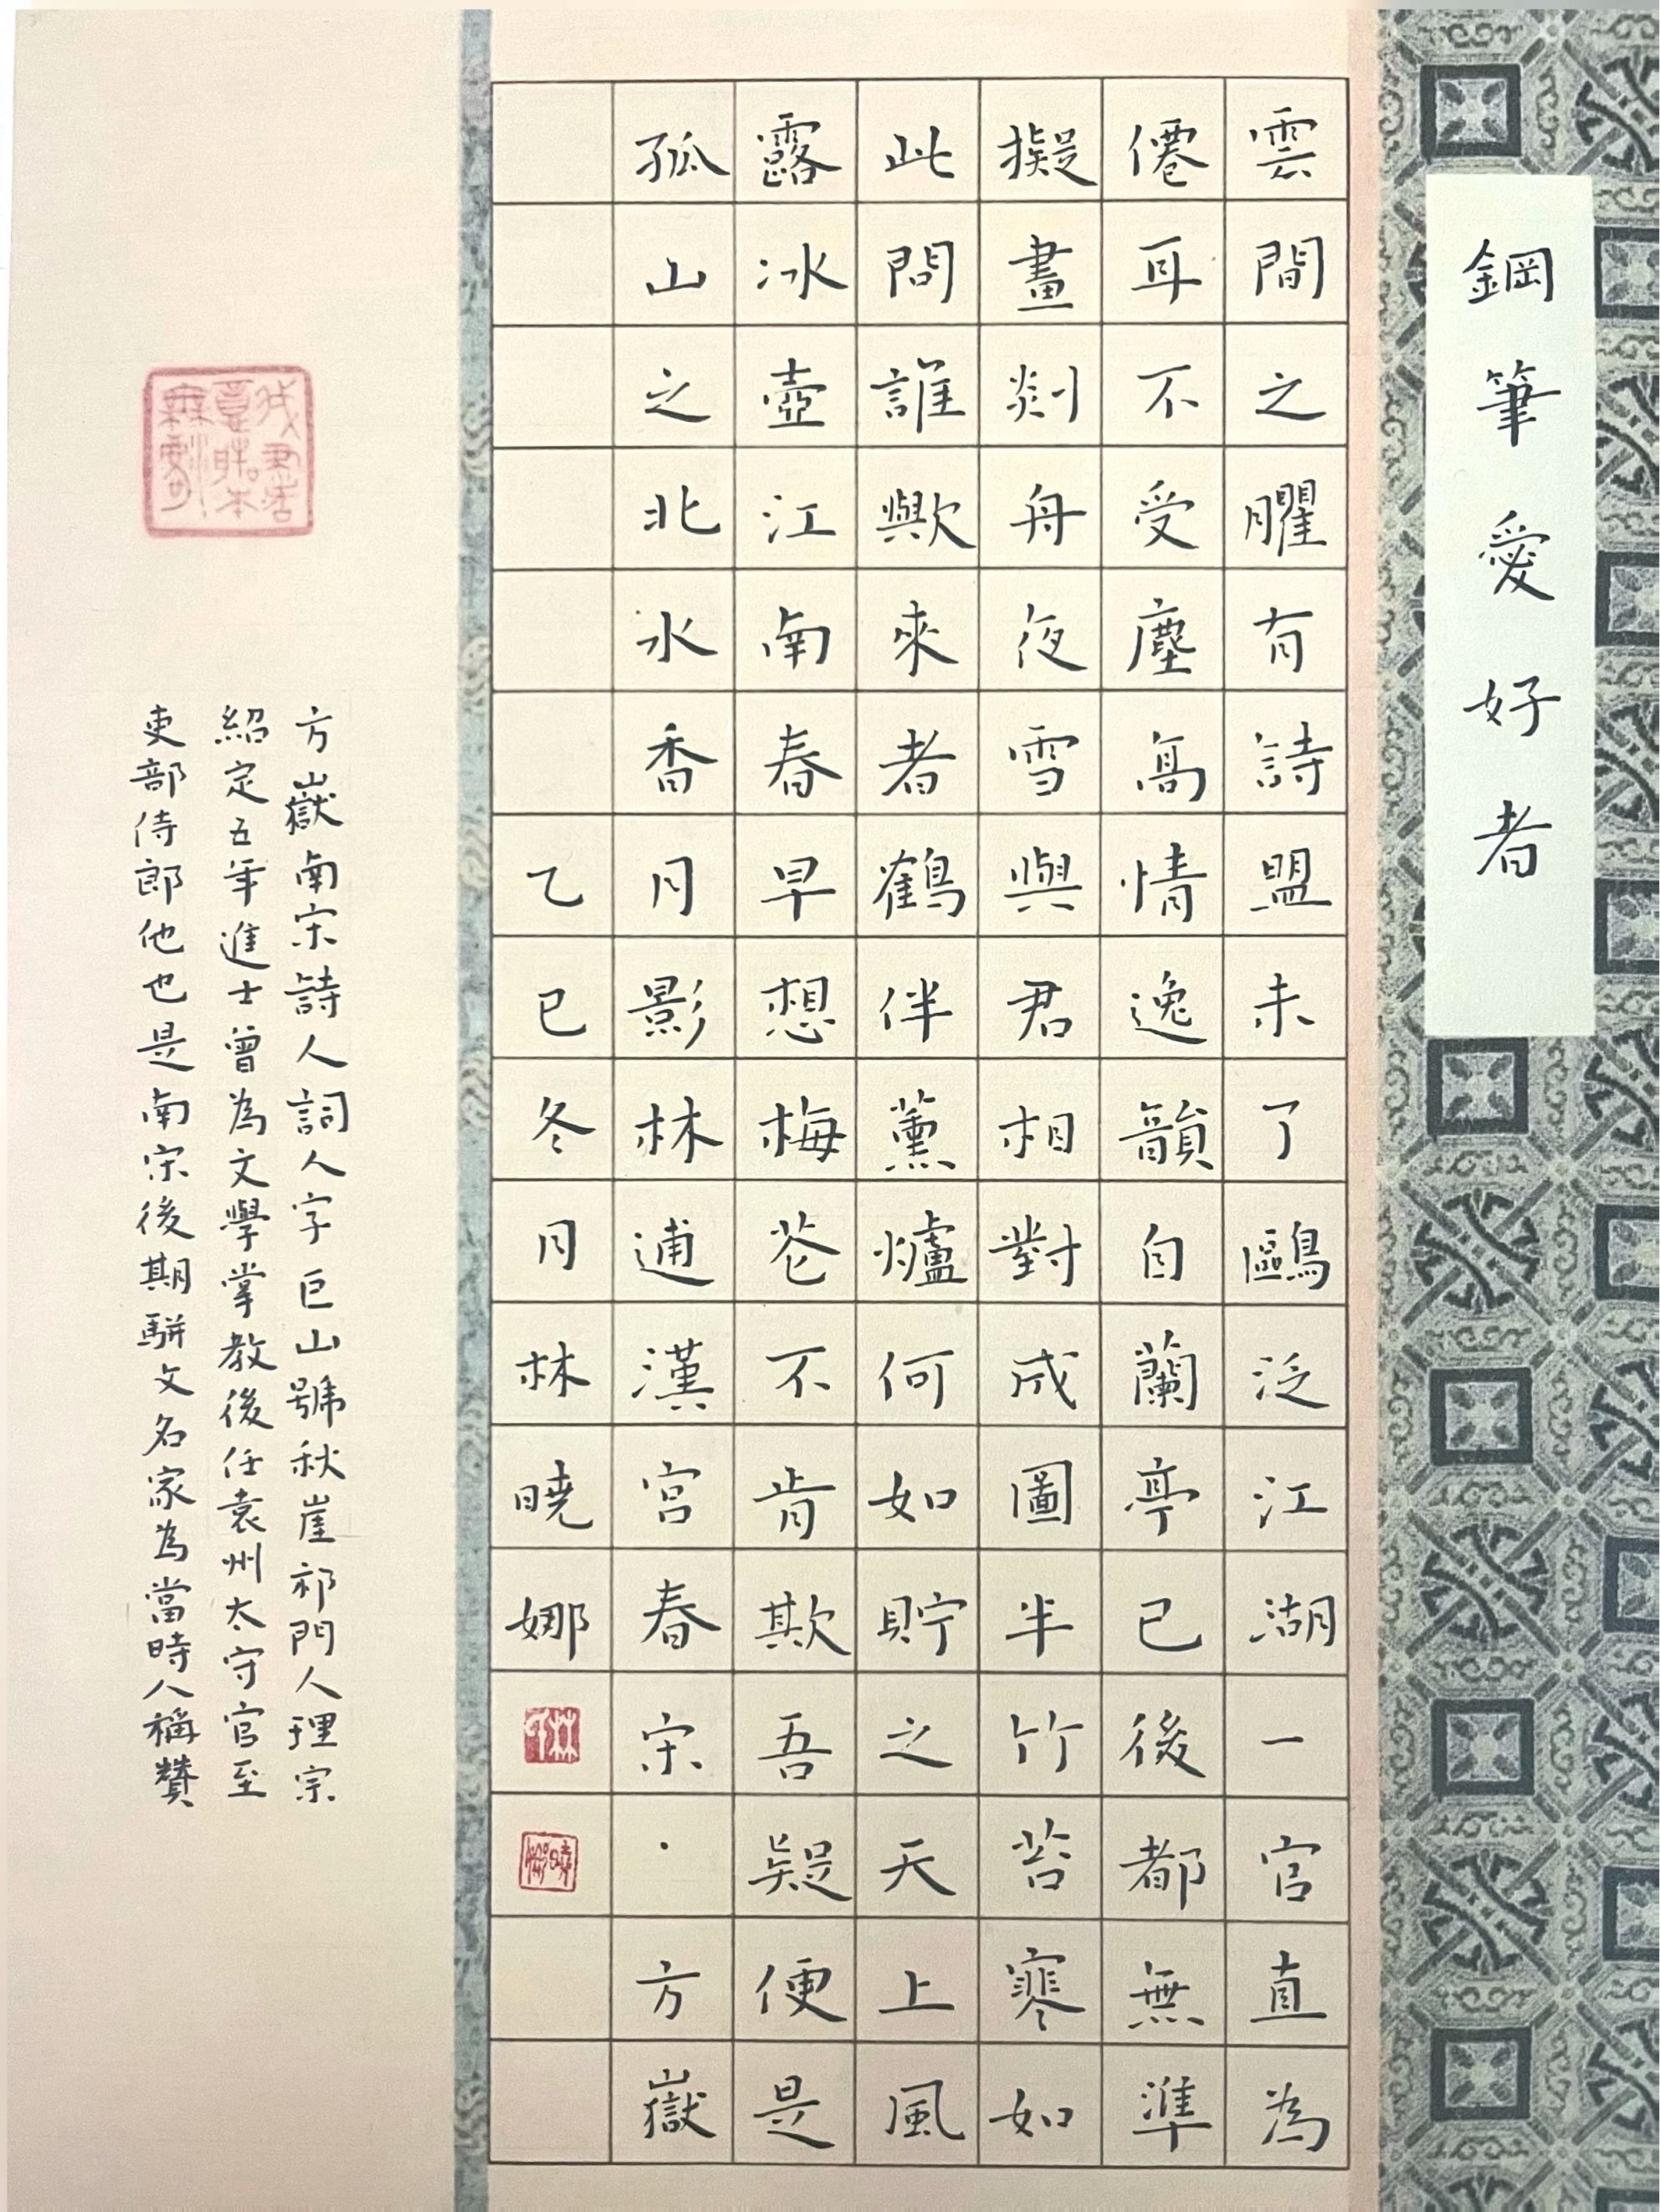 鋼筆愛好者
雲間之臞有詩盟未了鷗泛江湖一官直為
僊耳不受塵高情逸韻自蘭亭已後都無準
擬畫剡舟夜雪與君相對成圖半竹苔寒如
此問誰歟來者鶴伴薰爐何如貯之天上風
露冰壺江南春早想梅芲不肯欺吾疑便是
孤山之北水香月影林逋漢宮春宋·方嶽
乙巳冬月林曉娜
方嶽南宋詩人詞人字巨山號秋崖祁門人理宗
紹定五年進士曾為文學掌教後任袁州太守官至
吏部侍郎他也是南宋後期駢文名家為當時人稱贊